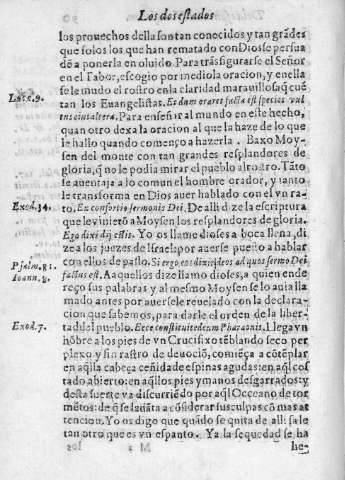 Los dos estados
los prouechos della son tan conocidos y tan grãdes
que solos los que han rematado con Dios se persua
dẽ a ponerla en oluido. Para trãsfigurarse el Señor
en el Tabor, escogio por medio la oracion, y en ella
se le mudo el rostro en la claridad marauillosa q̃ cuẽ
Luca. 9.
tan los Euangelistas. Es dum oraret facta est species vul
tus eius altera. Para enseñar al mundo en este hecho,
quan otro dexa la oracion al que la haze de lo que
le hallo quando començo a hazerla. Baxo Moy-
sen del monte con tan grandes resplandores de
gloria, q̃ no le podia mirar el pueblo al rostro. Tãto
se auentaja a lo comun el hombre orador, y tanto
le transforma en Dios auer hablado con el vn ra-
Exod. 34.
to. Ex consortio sermonis Dei. De alli dize la escriptura
que le vinierõ a Moysen los resplandores de gloria.
Ego dixi dij estis. Yo os llamo dioses a boca llena, di
ze a los juezes de Israel: por auerse puesto a hablar
Psalm. 81.
con ellos de passo. Si ergo eos dixit deos ad quos sermo Dei
Ioann. 8.
factus est. A aquellos dize llamo dioses, a quien ende
reço sus palabras y al mesmo Moysen se lo auia lla
mado antes por auersele reuelado con la declara-
cion que sabemos, para darle el orden de la liber-
Exod. 7.
tad del pueblo. Ecce constitui te deum Pharaonis. Llega vn
hõbre a los pies de vn Crucifixo tẽblando seco per
plexo y sin rastro de deuociõ, comiẽça a cõtẽplar
en aq̃lla cabeça ceñida de espinas agudas: en aq̃l cos
tado abierto: en aq̃llos pies y manos desgarrados: y
desta suerte va discurriẽdo por aq̃l Occeano de tor
mẽtos: de q̃ se leuãta a cõsiderar sus culpas cõ mas at
tencion. Yo os digo que quãdo se quita de alli: sale
tan otro que es vn espanto. Ya la sequedad se ha
M 2
he-